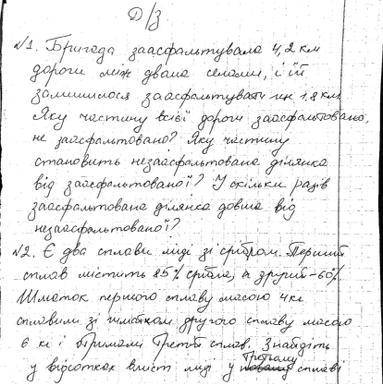 Д/З
№1. Бригада заасфальтувала 4,2 км
дороги між двома селами, і їй
залишилося заасфальтувати ще 1,8 км.
Яку частину всієї дороги заасфальтовано,
не заасфальтовано? Яку частину
становить незаасфальтована ділянка
від заасфальтованої? У скільки разів
заасфальтована ділянка довша від
незаасфальтованої?
№2. Є два сплави міді зі сріблом. Перший
сплав містить 85% срібла, а другий - 60%.
Шматок першого сплаву масою 4 кг
сплавили зі шматком другого сплаву масою
6 кг і отримали третій сплав. Знайдіть
у відсотках вміст міді у третьому сплаві